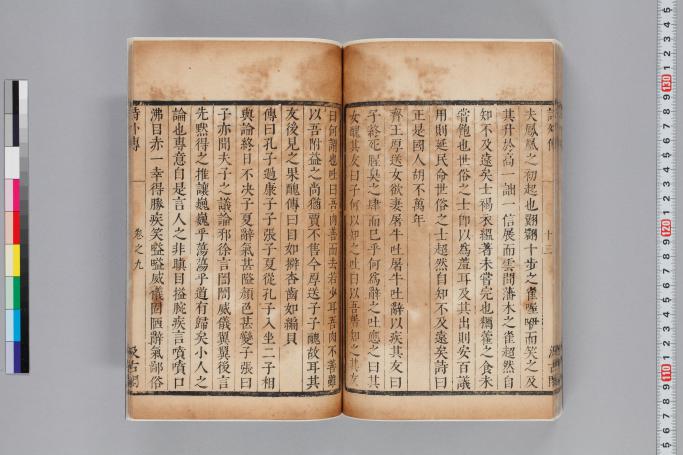 夫鳳凰之初起也翾翾十步之雀喔咿而笑之及
其升於高一詘一信展而雲間藩木之雀超然自
知不及遠矣士褐衣縕著未嘗完也糲藿之食未
嘗飽也世俗之士卽以爲羞耳及其出則安百議
用則延民命世俗之士超然自知不及遠矣詩曰
正是國人胡不萬年
齊王厚送女欲妻屠牛吐屠牛吐辭以疾其友曰
子終死腥臭之肆而已乎何爲辭之吐應之曰其
女醜其友曰子何以知之吐曰以吾屠知之其友
曰何謂也吐曰吾肉善而去若少耳吾肉不善雖
以吾附益之尚猶賈不售今厚送子子醜故耳其
友後見之果醜傳曰目如擗杏齒如編貝
傳曰孔子過康子子張子夏從孔子入坐二子相
與論終日不決子夏辭氣甚隘顏色甚變子張曰
子亦聞夫子之議論邪徐言誾誾威儀翼翼後言
先默得之推讓巍巍乎蕩蕩乎道有歸矣小人之
論也專意自是言人之非瞋目搤腕疾言噴噴口
沸目赤一幸得勝疾笑嗌嗌威儀固陋辭氣鄙俗
詩外傳
卷之九
十三
汲古閣
110
120
130